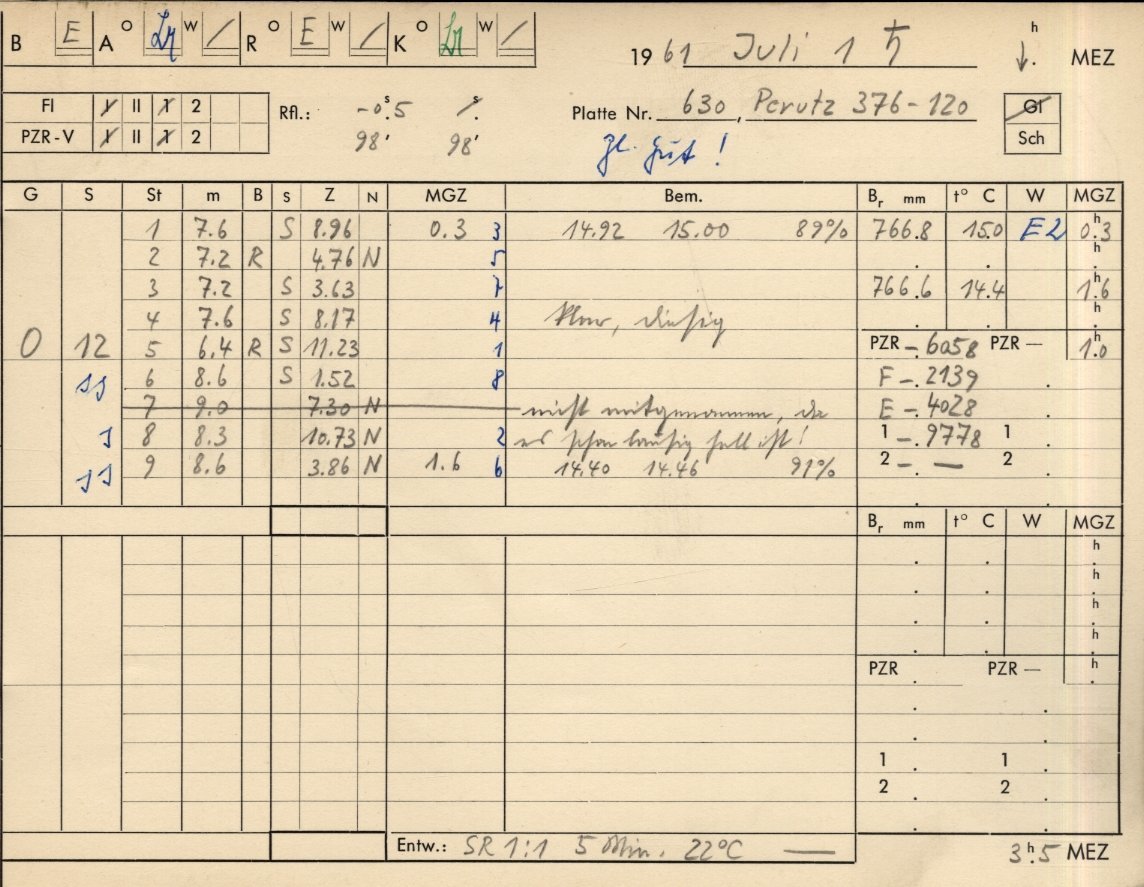 B E A O Lr W / R O E W / K O Lr W /
19 61 Juli 1 ♄ h MEZ
FI I II 1 2
PZR-V I II 1 2
Rfl.: -0.s5 /.s
98' 98'
Platte Nr. 630, Perutz 376-120
gl. gut!
Gl
Sch
G S St m B s Z N MGZ Bem. Br mm t° C W MGZ
1 7.6 S 8.96 0.3 3 14.92 15.00 89% 766.8 15.0 E2 0.h3
2 7.2 R 4.76 N 5 . . h.
3 7.2 S 3.63 7 766.6 14.4 1.h6
4 7.6 S 8.17 4 klar, diesig . . h.
0 12 5 6.4 R S 11.23 1 PZR -.6058 PZR — 1.h0
JJ 6 8.6 S 1.52 8 F -.2139 .
7 9.0 7.30 N nicht mitgenommen, da E -.4028 .
J 8 8.3 10.73 N 2 es schon häufig hell ist! 1 -.9778 1 .
JJ 9 8.6 3.86 N 1.6 6 14.40 14.46 91% 2 -. — 2 .
Br mm t° C W MGZ
h
h
h
h
PZR . PZR — h
1 . 1 .
2 . 2 .
Entw.: SR 1:1 5 Min. 22°C —
3h.5 MEZ